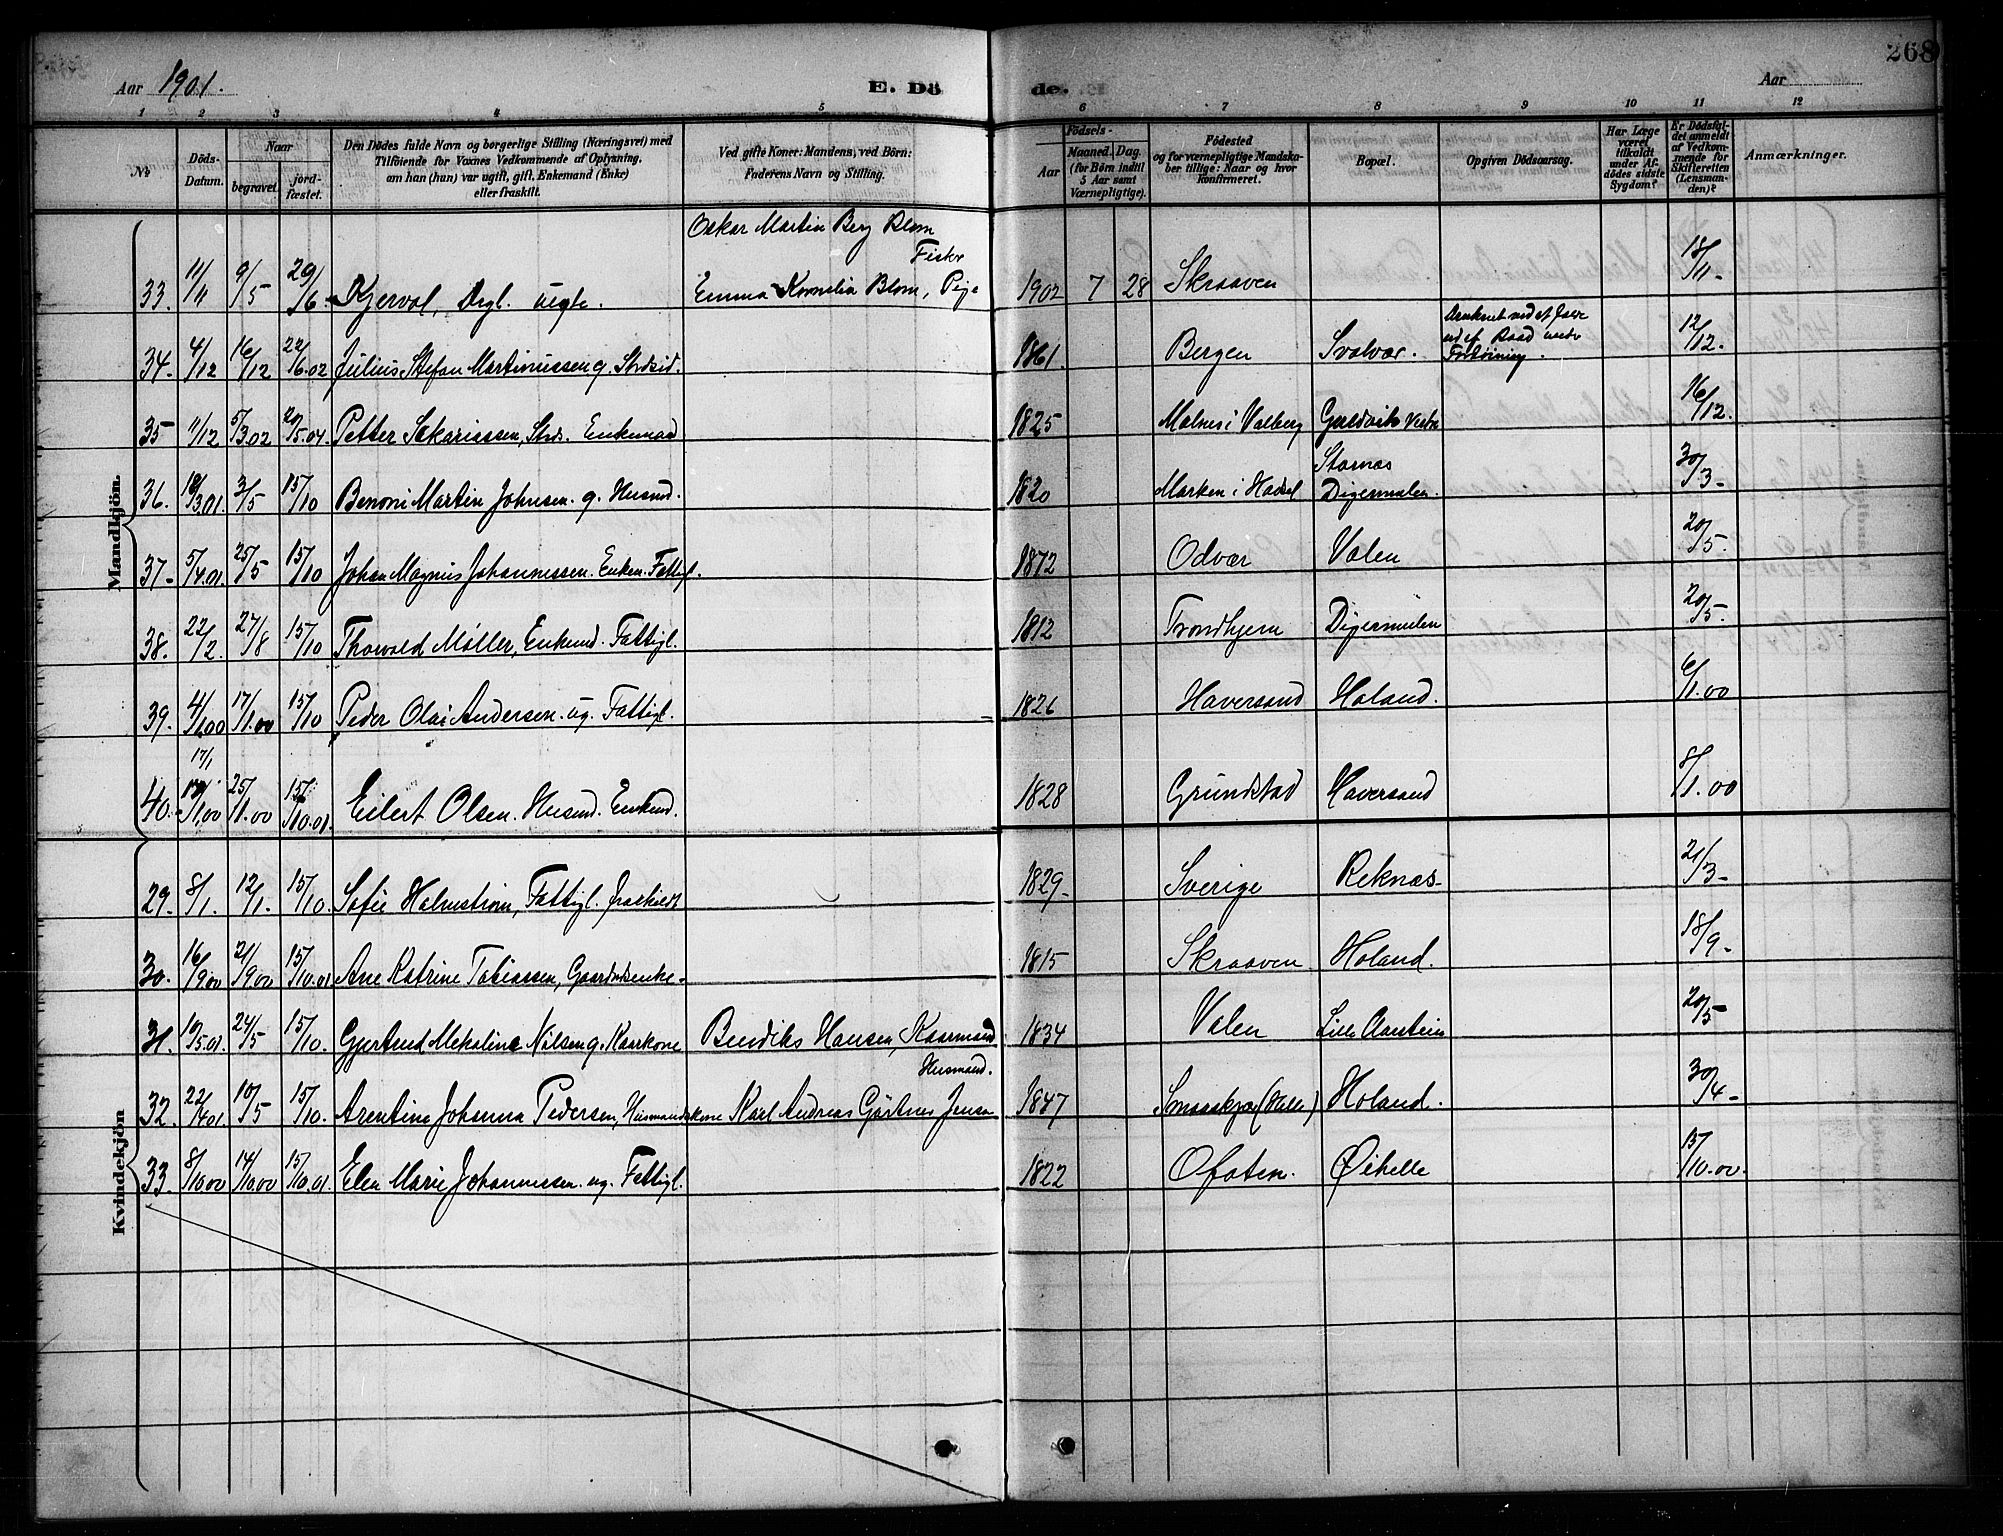 268
Aar 1901.
E. Dö
de.
Aar
1 2 3 4 5 6 7 8 9 10 11 12
No
Döds-Datum.
Naar
begravet.
jord-fæstet.
Den Dödes fulde Navn og borgerlige Stilling (Næringsvei) med
Tilföiende for Voxnes Vedkommende af Oplysning,
om han (hun) var ugift, gift, Enkemand (Enke)
eller fraskilt.
Ved gifte Koner: Mandens, ved Börn:
Faderens Navn og Stilling.
Födsels-
Aar
Maaned. Dag.
(for Börn indtil
5 Aar samt
Værnepligtige).
Födested
og for værnepligtige Mandska-
ber tillige: Naar og hvor
konfirmeret.
Bopæl.
Opgiven Dödsaarsag.
Har Læge
været
tilkaldt
under Af-
dödes sidste
Sygdom?
Er Dödsfal-
det anmeldt
af Vedkom-
mende for
Skifteretten
(Lensman-
den)?
Anmærkninger.
Mandkjön.
Oskar Martin Berg Blom
Fisker
33. 11/11 9/5 29/6 Kjerval, Dgl. uegte. Emma Kornelia Blom, Pige 1902 7 28 Skraaven 18/11
34. 4/12 16/12 22/6.02 Julius Stefan Martinussen g. Strdsid. 1861. Bergen Svolvær. 12/12.
35 11/12 5/3 02 Petter Sakariassen, Strds. Enkemand 1825 Malnes i Valberg 16/12.
36. 18/3.01. 3/5 15/10 Benoni Martin Johnsen. g. Husmd. 1820 Marken i Hadsel Stornæs Digermulen. 30/3
37 5/4.01. 25/5 15/10 Johan Magnus Johannessen. Enkem. Fattigl. 1872 Odvær Valen 20/5.
38. 22/2. 27/8 15/10 Thorvald Møller, Enkemd. Fattigl. 1812 Trondhjem Digermulen 20/5.
39. 4/1.00 17/1.00 15/10 Peder Olai Andersen. ug. Fattigl. 1826 Haversand Holand. 6/1.00
17/1
40. 17/1.00 25/1.00 15/10.01. Eilert Olsen. Husmd. Enkemd. 1828 Grundstad Haversand 8/1.00
Kvindekjön
29. 8/1. 12/1. 15/10. Sofie Holmstrøm, Fattigl. fraskildt 1829 Sverige Reknæs 21/3
30. 16/9.00 21/9.00 15/10.01 Ane Katrine Tobiassen, Gaardmdsenke. 1815 Skraaven Holand. 18/9
31. 19/5.01. 24/5 15/10. Gjertrud Mekaline Nilsen g. Kaarkone Bendiks Hansen, Kaarmand 1834 Valen Lille 20/5
Husmand.
32. 22/4.01. 10/5 15/10. Arentine Johanna Pedersen, Husmandskone Karl Andreas Gärtner Jensen 1847 Holand. 30/4
33. 8/10.00 14/10.00 15/10.01. Elen Marie Johannessen. ug. Fattigl. 1822 Ofoten. Øihelle 15/10.00.